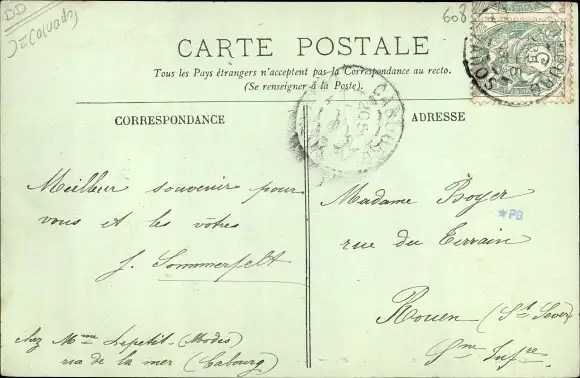 DD
608
CARTE POSTALE
Tous les Pays étrangers n'acceptent pas la Correspondance au recto.
(Se renseigner à la Poste).
CORRESPONDANCE
Meilleur souvenir pour
vous et les vôtres
J. Sommerfelt
chez Mme Lepetit - (Modes)
rue de la mer (Cabourg)
CABOURG
ADRESSE
Madame Boyer
*PB
rue du Terrain
Rouen (St Sever)
Sne Infre